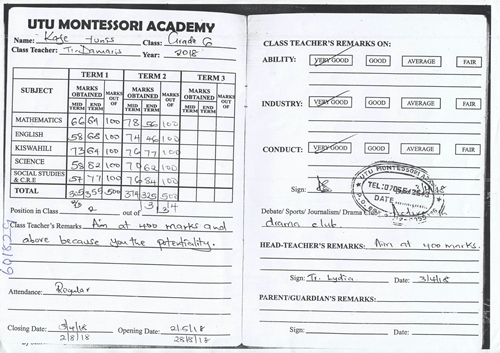 UTU MONTESSORI ACADEMY
Name: Kate Class: Grade 6
Class Teacher: Tr Damaris Year: 2018
SUBJECT TERM 1 TERM 2 TERM 3
MARKS OBTAINED MARKS OUT OF MARKS OBTAINED MARKS OUT OF MARKS OBTAINED MARKS OUT OF
MID TERM END TERM MID TERM END TERM MID TERM END TERM
MATHEMATICS 66 100 78 56 100
ENGLISH 58 66 100 74 46 100
KISWAHILI 73 64 100 76 77 100
SCIENCE 58 82 100 70 62 100
SOCIAL STUDIES & C.R.E 57 77 100 76 84 100
TOTAL 355 500 374 325 500
Position in Class 2 out of
Class Teacher's Remarks: Aim at 400 marks and
above because you the potentiality.
Attendance: Regular
Closing Date: 3/4/18 Opening Date: 2/5/18
2/8/18 28/8/18
CLASS TEACHER'S REMARKS ON:
ABILITY: VERY GOOD GOOD AVERAGE FAIR
INDUSTRY: VERY GOOD GOOD AVERAGE FAIR
CONDUCT: VERY GOOD GOOD AVERAGE FAIR
UTU MONTESSORI
Sign: TEL: 3/4/18
DATE
Debate/ Sports/ Journalism/ Drama Club: Active in
drama club.
HEAD-TEACHER'S REMARKS: Aim at 400 marks.
Sign: Tr. Lydia Date: 3/4/18
PARENT/GUARDIAN'S REMARKS:
Sign: Date: